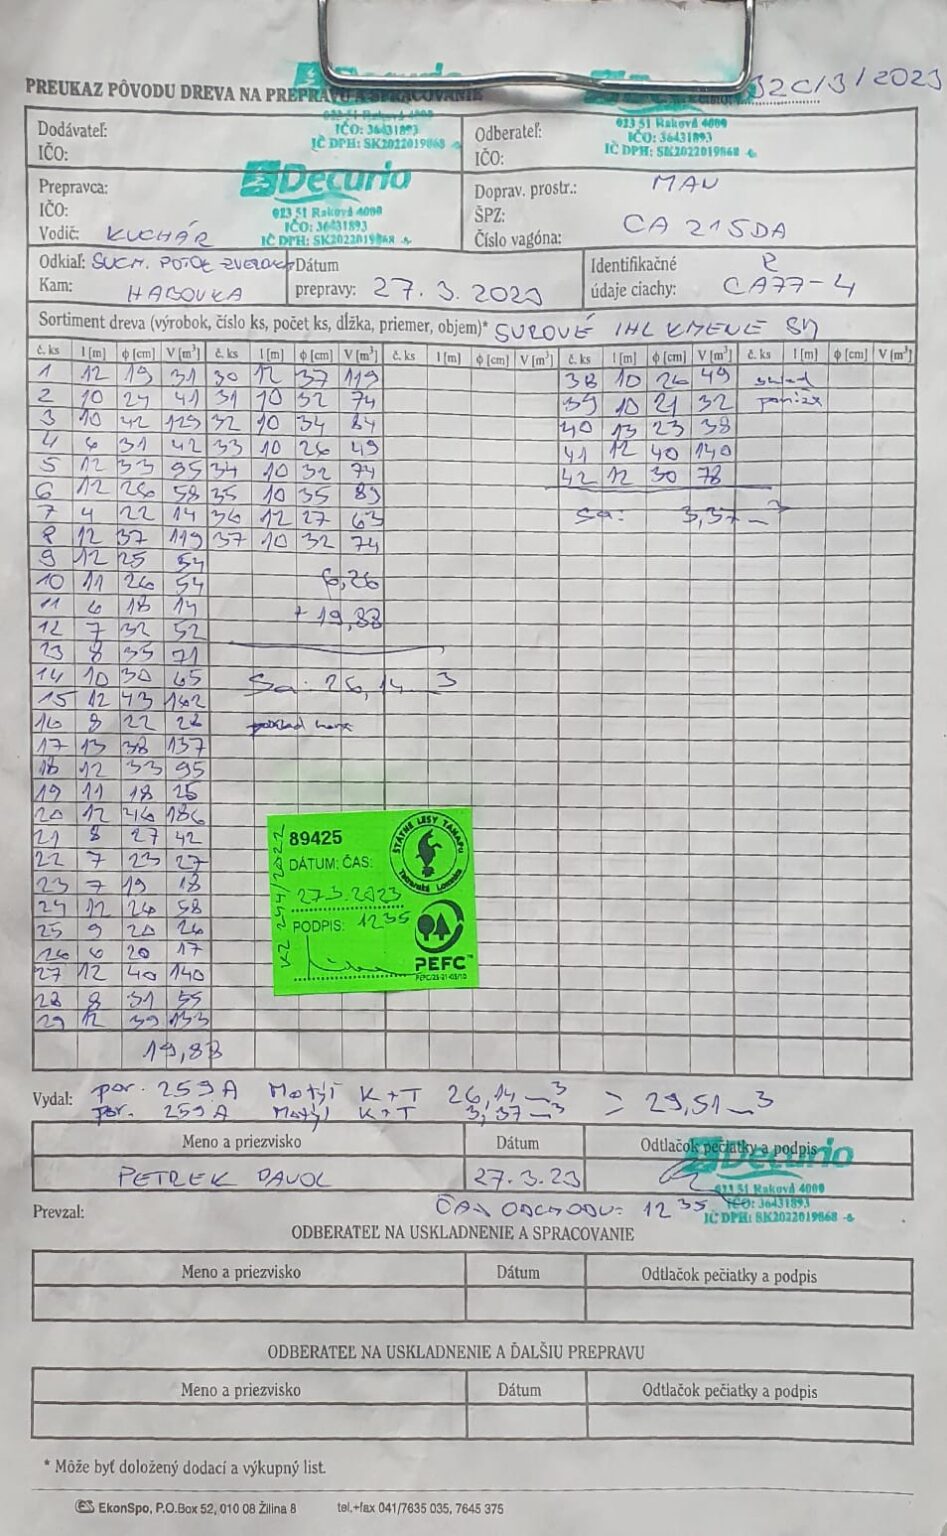 32C/3/2023
PREUKAZ PÔVODU DREVA NA PREPRAVU A SPRACOVANIE
Decurio
023 51 Raková 4000
IČO: 36431893
IČ DPH: SK2022019868
023 51 Raková 4000
IČO: 36431893
IČ DPH: SK2022019868
Dodávateľ:
IČO:
Odberateľ:
IČO:
Prepravca:
IČO:
Vodič: KUCHÁR
Decurio
023 51 Raková 4000
IČO: 36431893
IČ DPH: SK2022019868
Doprav. prostr.: MAN
ŠPZ:
Číslo vagóna: CA 215DA
Odkiaľ: SUCH. POTOK
Kam: HABOVKA
Dátum
prepravy: 27. 3. 2023
Identifikačné R
údaje ciachy: CA77-4
Sortiment dreva (výrobok, číslo ks, počet ks, dĺžka, priemer, objem)* SUROVÉ IHL KMENE SM
č. ks l [m] ϕ [cm] V [m³] č. ks l [m] ϕ [cm] V [m³] č. ks l [m] ϕ [cm] V [m³] č. ks l [m] ϕ [cm] V [m³] č. ks l [m] ϕ [cm] V [m³]
1 12 19 31 30 12 37 119 38 10 26 49 sklad
2 10 24 41 31 10 32 74 39 10 21 32
3 10 42 129 32 10 34 84 40 13 23 38
4 6 31 42 33 10 26 49 41 12 40 140
5 12 33 95 34 10 32 74 42 12 30 78
6 12 26 58 35 10 35 89
7 4 22 14 36 12 27 63 Sa: 3,37 m3
8 12 37 119 37 10 32 74
9 12 25 54
10 11 26 54 6,26
11 6 18 14 + 19,88
12 7 32 52
23 8 35 71
14 10 30 65 Sa: 26,14 m3
15 12 43 162
16 8 22 26
17 13 38 137
18 12 33 95
19 11 18 25
20 12 46 186
21 8 27 42
22 7 23 27
23 7 19 18
24 12 26 58
25 9 20 26
26 6 20 17
27 12 40 140
28 8 31 55
29 12 39 133
19,88
KZ 294/2022
89425
DÁTUM: ČAS:
27.3.2023
PODPIS: 12 35
ŠTÁTNE LESY TANAPU
Tatranská Lomnica
PEFC™
Vydal: por. 259 A Motýľ K+T 26,14 m3 > 29,51 m3
por. 259 A Motýľ K+T 3,37 m3
Meno a priezvisko Dátum Odtlačok pečiatky a podpis
PETREK PAVOL 27.3.23
Decurio
023 51 Raková 4000
IČO: 36431893
IČ DPH: SK2022019868
Prevzal: ČAS ODCHODU: 12 35
ODBERATEĽ NA USKLADNENIE A SPRACOVANIE
Meno a priezvisko Dátum Odtlačok pečiatky a podpis
ODBERATEĽ NA USKLADNENIE A ĎALŠIU PREPRAVU
Meno a priezvisko Dátum Odtlačok pečiatky a podpis
* Môže byť doložený dodací a výkupný list.
ES EkonSpo, P.O.Box 52, 010 08 Žilina 8 tel.+fax 041/7635 035, 7645 375